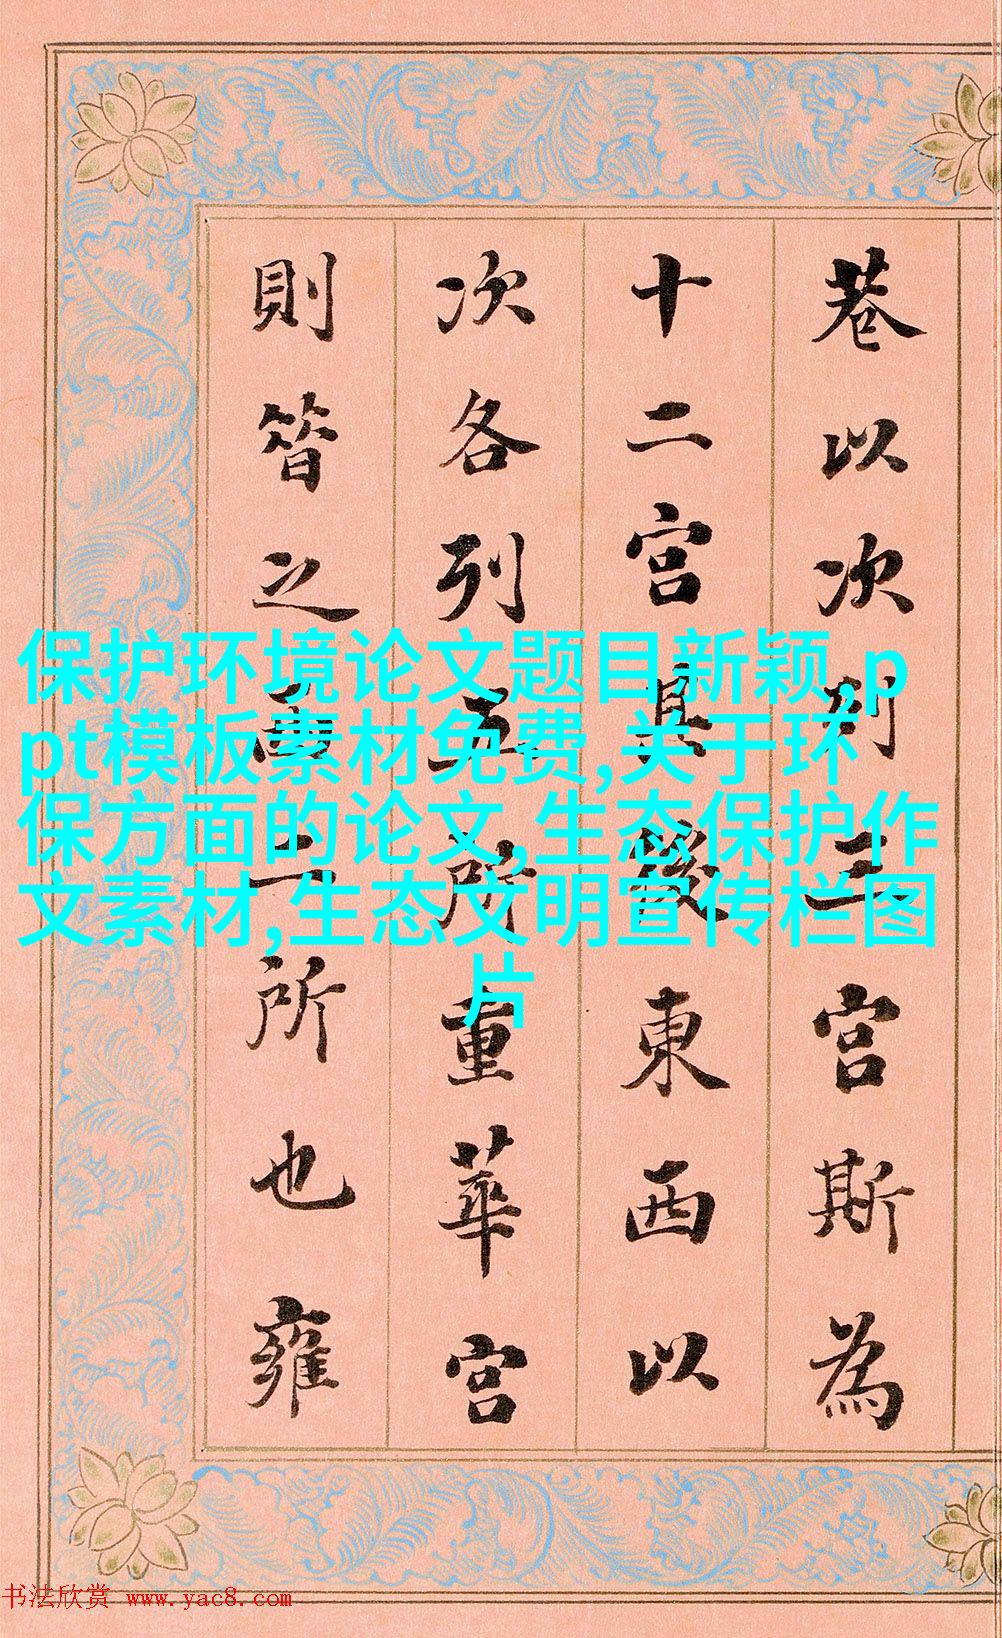 巷以次列三宮斯為
十二宮其後東西以
次各列五所重華宮
則昔之西二所也雍
保护环境论文题目新颖,p
pt模板素材免费,关于环
保方面的论文,生态保护作
文素材,生态文明宣传栏图
片
书法欣赏 www.yac8.com